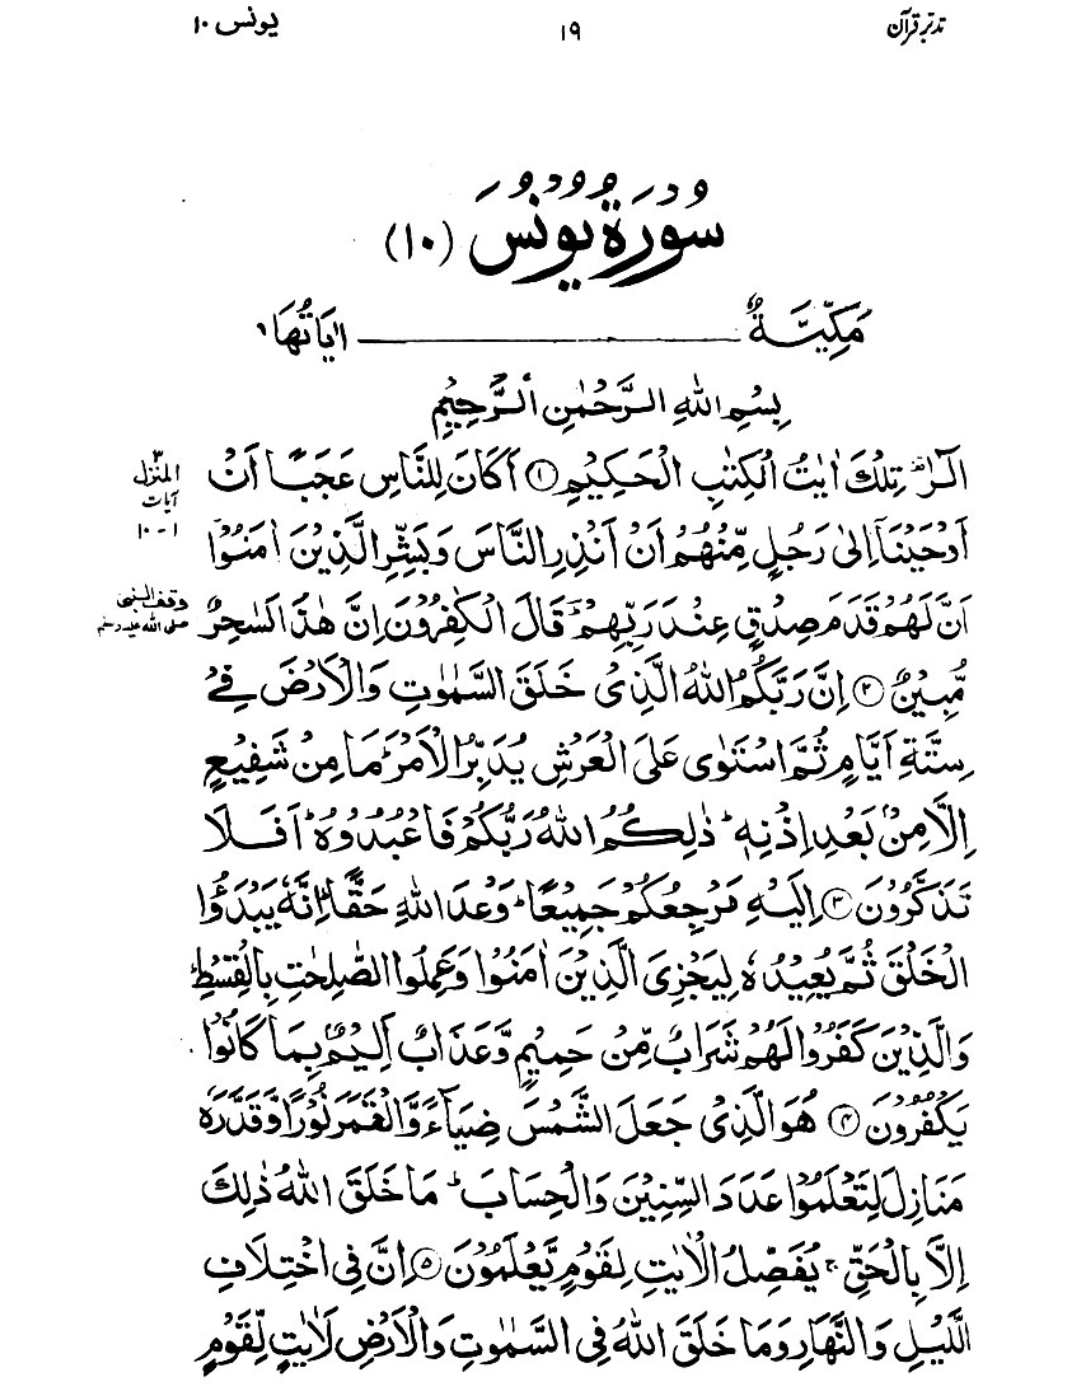 تدبر قرآن ۱۹ یونس ۱۰
سُوْرَةُ يُوْنُسَ (۱۰)
مَكِّيَّةٌ ـــــ اٰيَاتُهَا
بِسْمِ اللهِ الرَّحْمٰنِ الرَّحِيْمِ
الٓرٰ تِلْكَ اٰيٰتُ الْكِتٰبِ الْحَكِيْمِ ① اَكَانَ لِلنَّاسِ عَجَبًا اَنْ
المنزل ۳
آیات
۱-۱۰
اَوْحَيْنَآ اِلٰى رَجُلٍ مِّنْهُمْ اَنْ اَنْذِرِ النَّاسَ وَبَشِّرِ الَّذِيْنَ اٰمَنُوْٓا
اَنَّ لَهُمْ قَدَمَ صِدْقٍ عِنْدَ رَبِّهِمْ ؕ قَالَ الْكٰفِرُوْنَ اِنَّ هٰذَا لَسٰحِرٌ
وقف النبی
صلی اللہ علیہ وسلم
مُّبِيْنٌ ② اِنَّ رَبَّكُمُ اللهُ الَّذِىْ خَلَقَ السَّمٰوٰتِ وَالْاَرْضَ فِىْ
سِتَّةِ اَيَّامٍ ثُمَّ اسْتَوٰى عَلَى الْعَرْشِ يُدَبِّرُ الْاَمْرَ ؕ مَا مِنْ شَفِيْعٍ
اِلَّا مِنْۢ بَعْدِ اِذْنِهٖ ؕ ذٰلِكُمُ اللهُ رَبُّكُمْ فَاعْبُدُوْهُ ؕ اَفَلَا
تَذَكَّرُوْنَ ③ اِلَيْهِ مَرْجِعُكُمْ جَمِيْعًا ؕ وَعْدَ اللهِ حَقًّا ؕ اِنَّهٗ يَبْدَؤُا
الْخَلْقَ ثُمَّ يُعِيْدُهٗ لِيَجْزِىَ الَّذِيْنَ اٰمَنُوْا وَعَمِلُوا الصّٰلِحٰتِ بِالْقِسْطِ ؕ
وَالَّذِيْنَ كَفَرُوْا لَهُمْ شَرَابٌ مِّنْ حَمِيْمٍ وَّعَذَابٌ اَلِيْمٌۢ بِمَا كَانُوْا
يَكْفُرُوْنَ ④ هُوَ الَّذِىْ جَعَلَ الشَّمْسَ ضِيَآءً وَّالْقَمَرَ نُوْرًا وَّقَدَّرَهٗ
مَنَازِلَ لِتَعْلَمُوْا عَدَدَ السِّنِيْنَ وَالْحِسَابَ ؕ مَا خَلَقَ اللهُ ذٰلِكَ
اِلَّا بِالْحَقِّ ۚ يُفَصِّلُ الْاٰيٰتِ لِقَوْمٍ يَّعْلَمُوْنَ ⑤ اِنَّ فِى اخْتِلَافِ
الَّيْلِ وَالنَّهَارِ وَمَا خَلَقَ اللهُ فِى السَّمٰوٰتِ وَالْاَرْضِ لَاٰيٰتٍ لِّقَوْمٍ